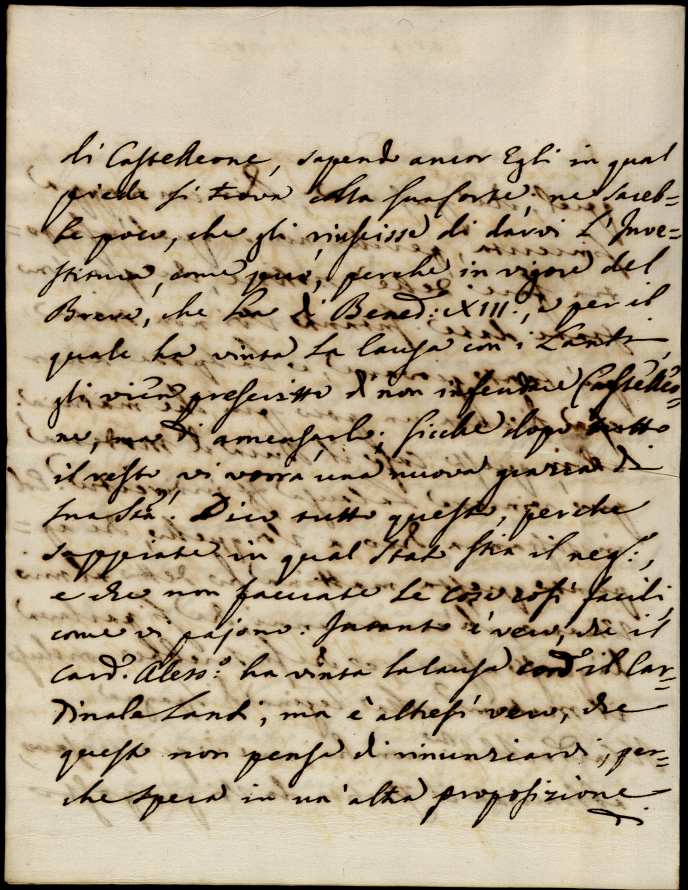 di Castelleone, sapend ancor Egli in qual
piede si trova colla sua sorte; ne sareb=
be poco, che gli riuscisse di darvi l'Inve=
stitura, come pare, perche in vigore del
Breve, che ha di Bened: XIII., e per il
quale ha vinta la causa con i Lanti,
gli viene prescritto di non infeudare Castelleo=
ne, ma di amensarlo; sicche dopo tutto
il resto, vi vorrà una nuova grazia di
sua Stà. Dico tutto questo, perche
sappiate in qual stato stia il neg:,
e che non facciate le cose così facili,
come vi pajono: Intanto è vero, che il
Card. Aless:o ha vinta la causa con il Car=
dinale Lanti, ma è altresì vero, che
questo non pensa di rinunziarvi, per=
che spera in un'altra proposizione
di